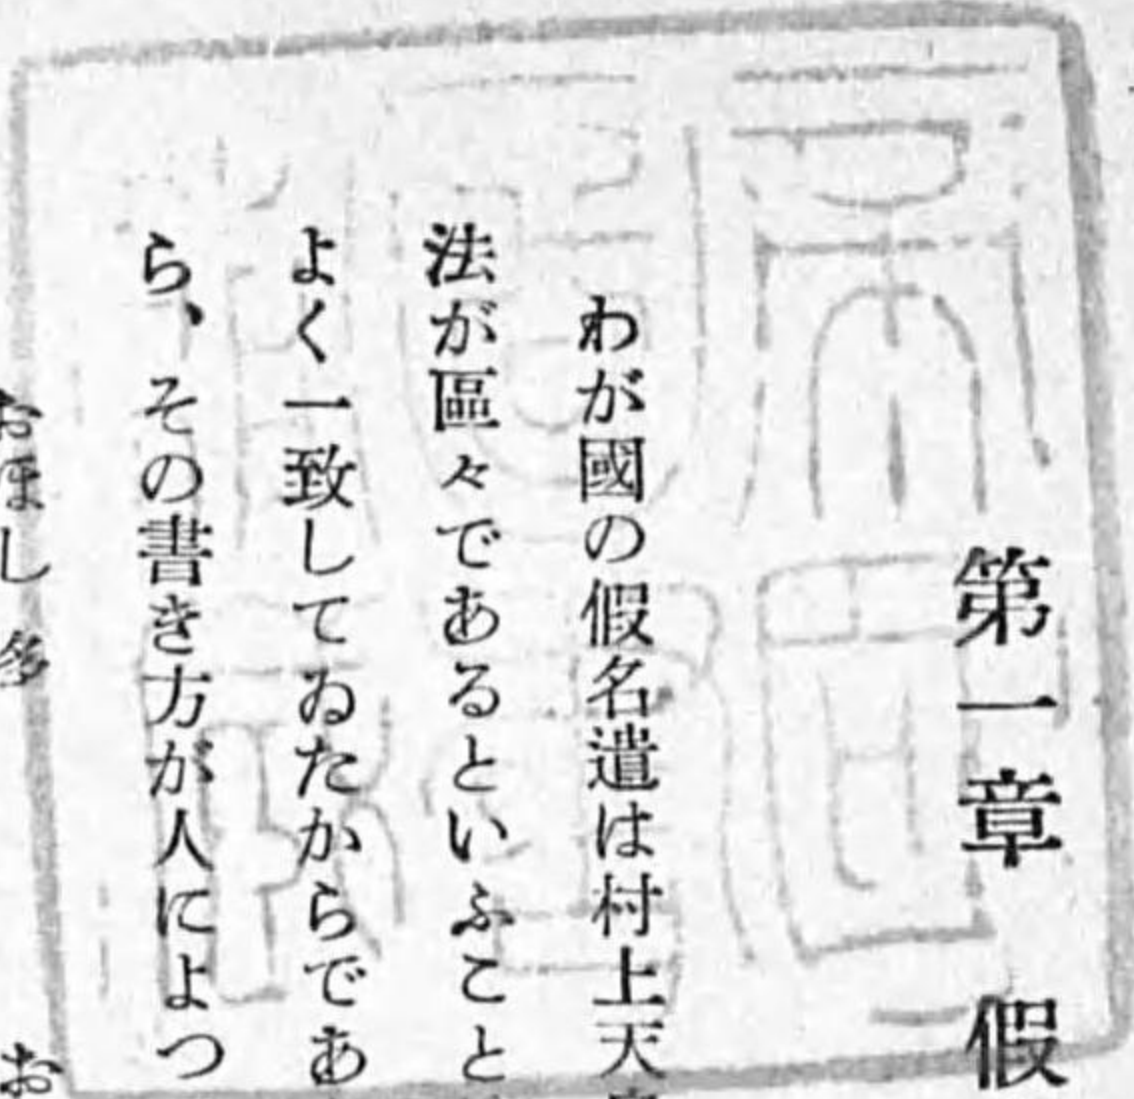 第一章 假
わが國の假名遣は村上天
法が區々であるといふこと
よく一致してゐたからであ
ら、その書き方が人によつ
おほし 多 お